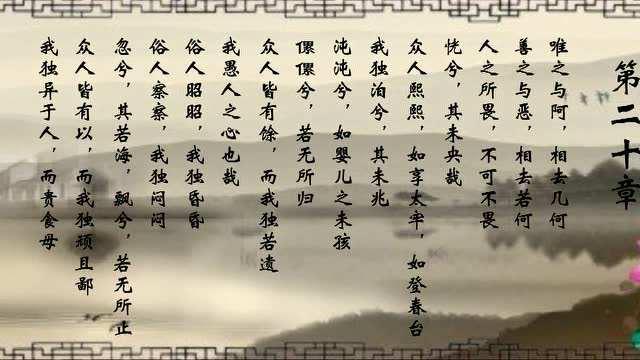 第二十章
唯之与阿，相去几何
善之与恶，相去若何
人之所畏，不可不畏
恍兮，其未央哉
众人熙熙，如享太牢，如登春台
我独泊兮，其未兆
沌沌兮，如婴儿之未孩
儽儽兮，若无所归
众人皆有馀，而我独若遗
我愚人之心也哉
俗人昭昭，我独昏昏
俗人察察，我独闷闷
忽兮，其若海，飘兮，若无所止
众人皆有以，而我独顽且鄙
我独异于人，而贵食母